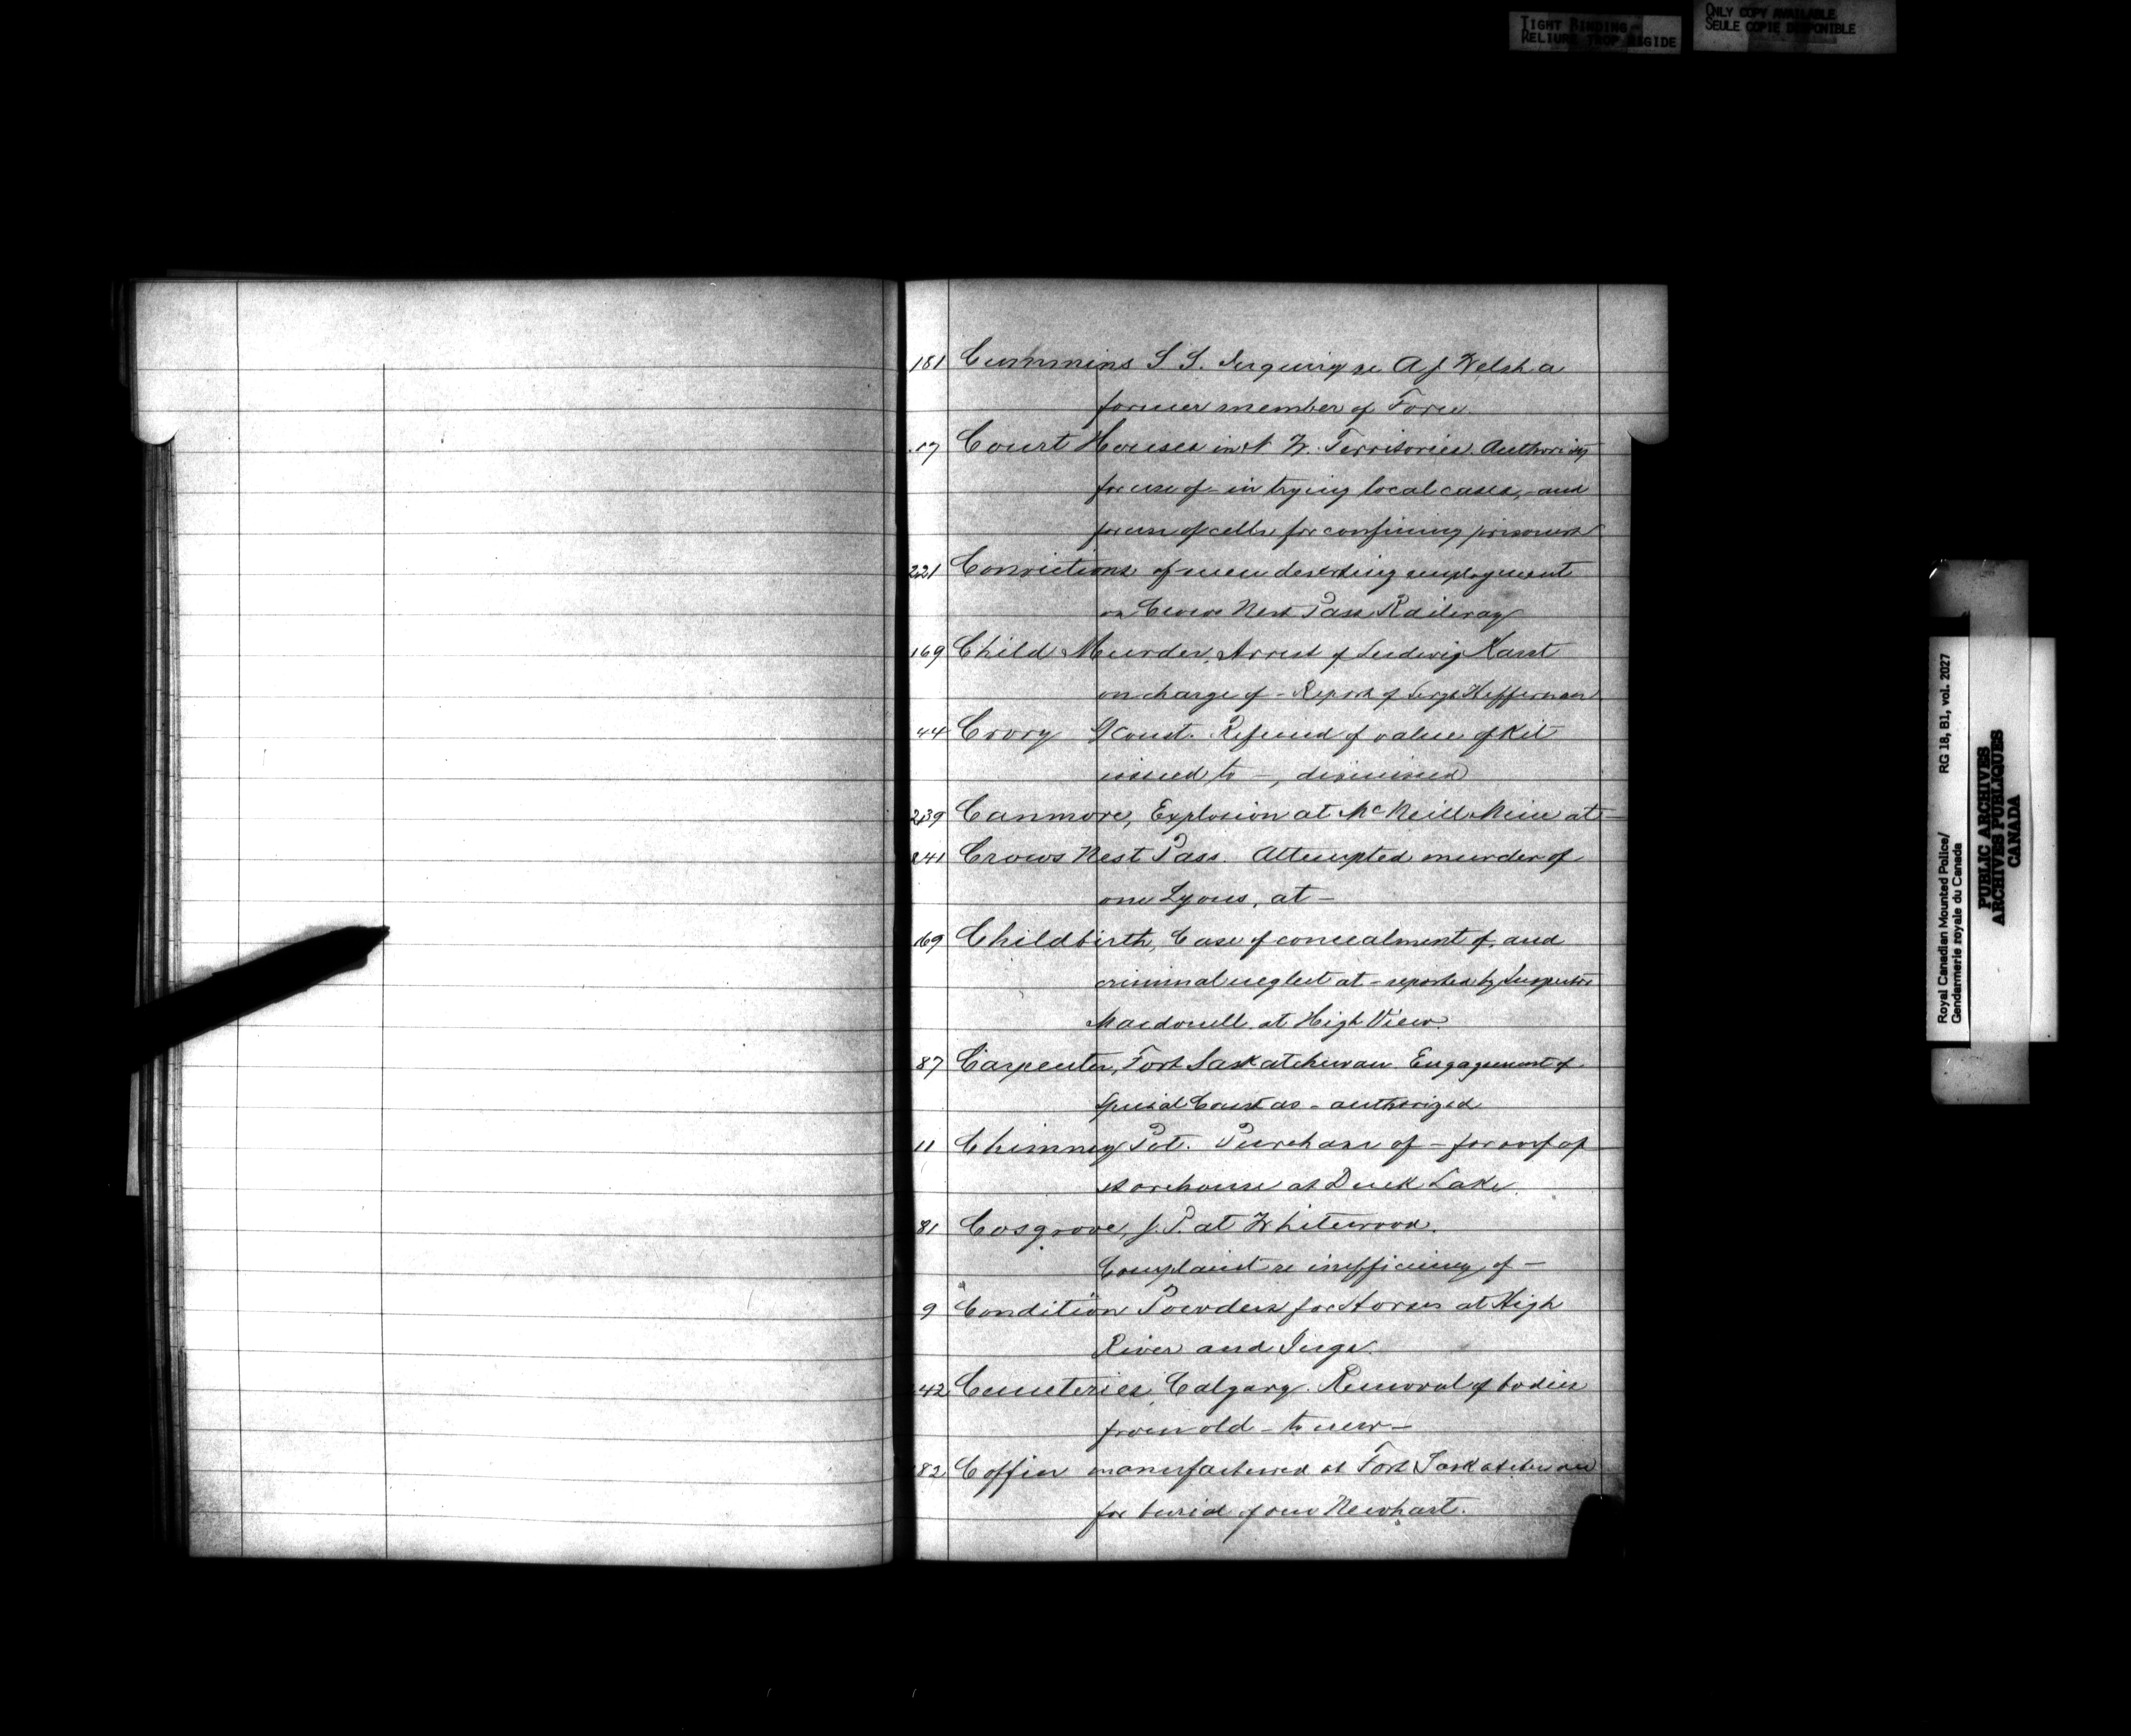 TIGHT BINDING
RELIURE TROP RIGIDE
ONLY COPY AVAILABLE
SEULE COPIE DISPONIBLE
181 Cummins S S. Inquiry re A J Welsh a
former member of Force.
17 Court Houses in N W. Territories. Authority
for use of in trying local cases, and
for use of cells for confining prisoners
221 Convictions of men deserting employment
on Crows Nest Pass Railway
169 Child Murder, Arrest of Ludwig Karst
on charge of - Report of Sergt Heffernan
44 Crory G Const. Refund of value of Kit
issued to -, dismissed
239 Canmore, Explosion at McNeill Mine at -
241 Crows Nest Pass. Attempted murder of
one Lyons, at -
169 Childbirth, Case of concealment of, and
criminal neglect at - reported by Inspector
Macdonell at High View.
87 Carpenter, Fort Saskatchewan Engagement of
Special Const as - authorized
11 Chimney Pot. Purchase of - for roof of
storehouse at Duck Lake.
81 Cosgrove, J. P. at Whitewood.
Complaint re inefficiency of -
9 Condition Powders for Horses at High
River and Inga.
42 Cemeteries, Calgary. Removal of bodies
from old - to new -
82 Coffin manufactured at Fort Saskatchewan
for burial of one Newhart.
Royal Canadian Mounted Police/
Gendarmerie royale du Canada
RG 18, B1, vol. 2027
PUBLIC ARCHIVES
ARCHIVES PUBLIQUES
CANADA